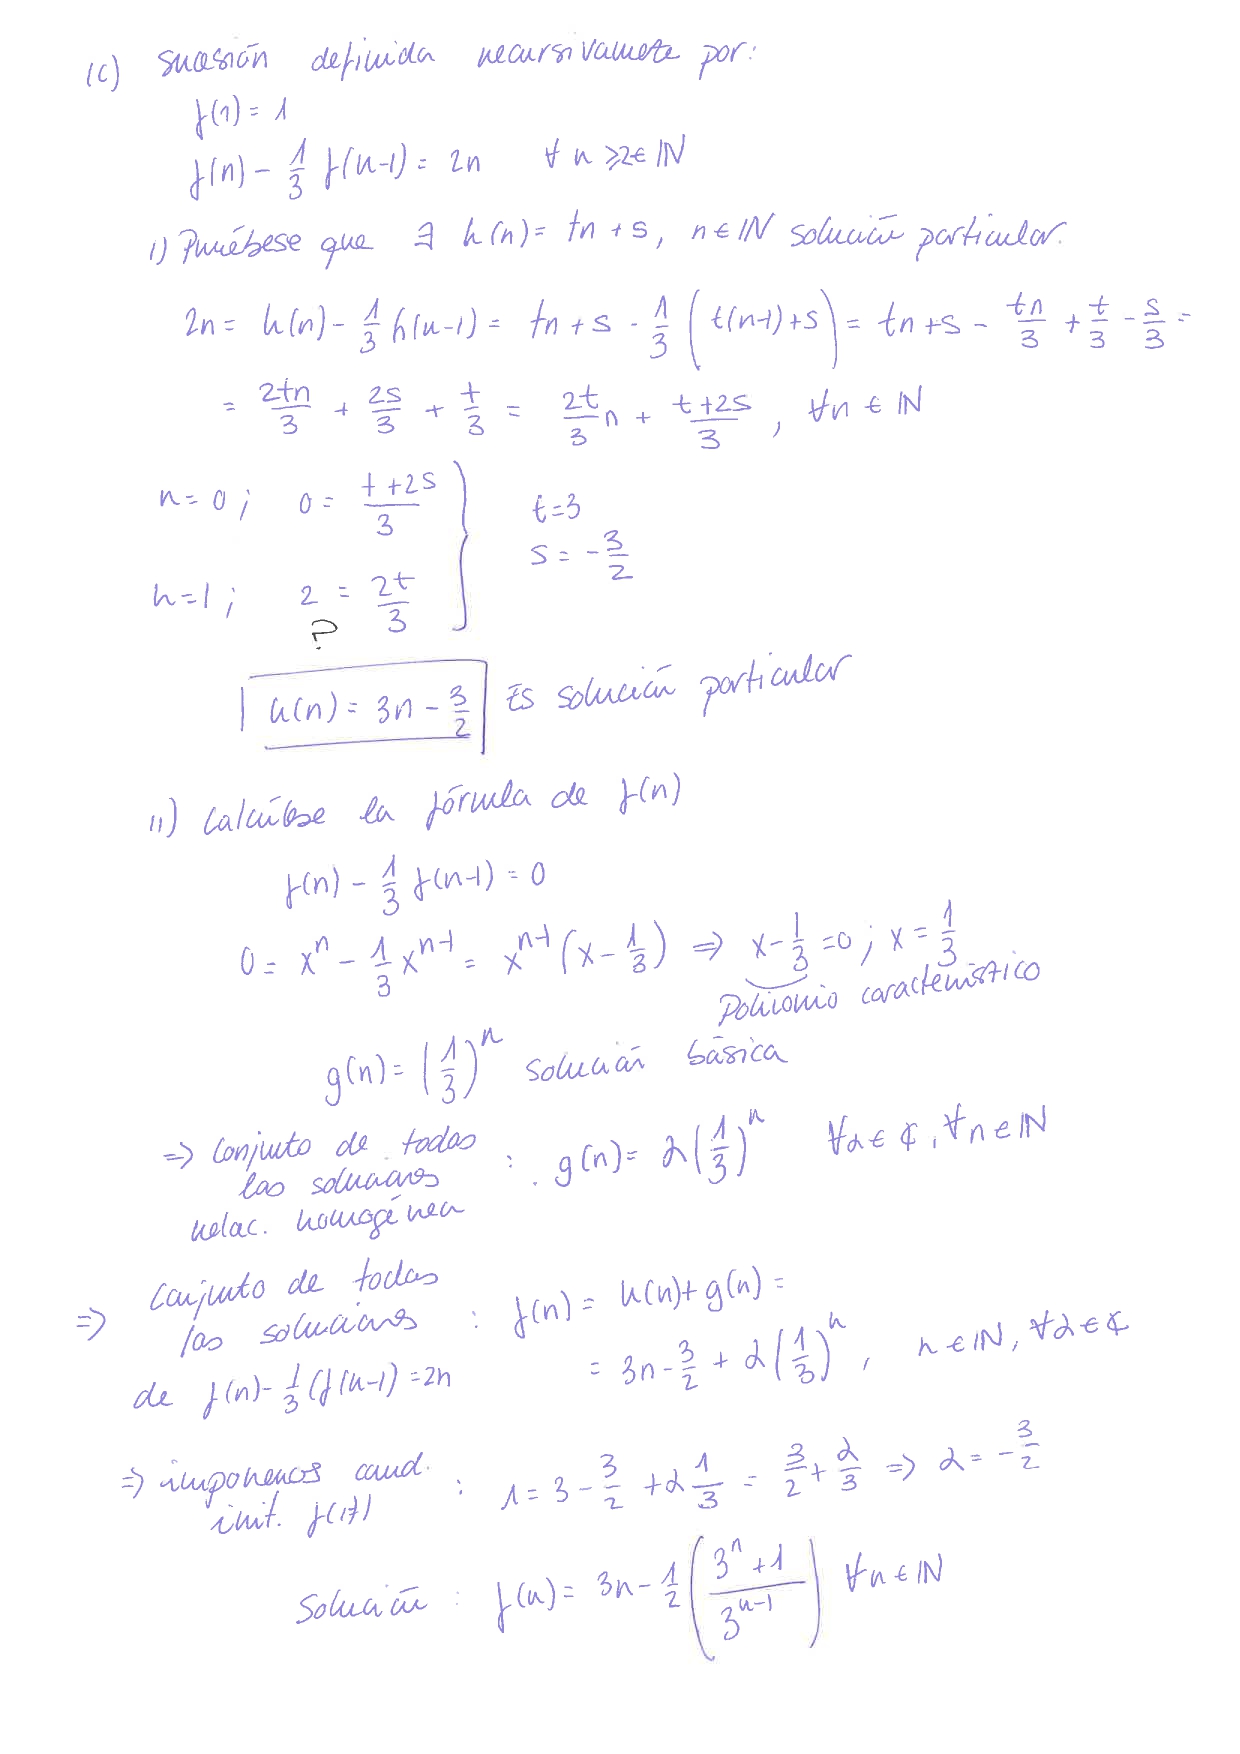 (c) sucesión definida recursivamete por:
f(1) = 1
f(n) - 1/3 f(n-1) = 2n ∀ n ≥ 2 ∈ IN
i) Pruébese que ∃ h(n) = tn + s, n ∈ IN solución particular.
2n = h(n) - 1/3 h(n-1) = tn + s - 1/3 (t(n-1)+s) = tn + s - tn/3 + t/3 - s/3 =
= 2tn/3 + 2s/3 + t/3 = 2t/3 n + (t+2s)/3, ∀n ∈ IN
n = 0; 0 = (t+2s)/3
t=3
s = -3/2
n=1; 2 = 2t/3
?
h(n) = 3n - 3/2 Es solución particular
ii) Calcúlese la fórmula de f(n)
f(n) - 1/3 f(n-1) = 0
0 = x^n - 1/3 x^(n-1) = x^(n-1) (x - 1/3) ⇒ x - 1/3 = 0; x = 1/3
Polinomio característico
g(n) = (1/3)^n solución básica
⇒ Conjunto de todas
las soluciones : g(n) = α(1/3)^n ∀α ∈ ₵, ∀n ∈ IN
relac. homogénea
⇒ Conjunto de todas
las soluciones : f(n) = h(n) + g(n) =
de f(n) - 1/3 (f(n-1) = 2n = 3n - 3/2 + α(1/3)^n, n ∈ IN, ∀α ∈ ₵
⇒ imponemos cond.
init. f(1) : 1 = 3 - 3/2 + α 1/3 = 3/2 + α/3 ⇒ α = -3/2
Solución : f(n) = 3n - 1/2 ((3^n + 1)/3^(n-1)) ∀n ∈ IN